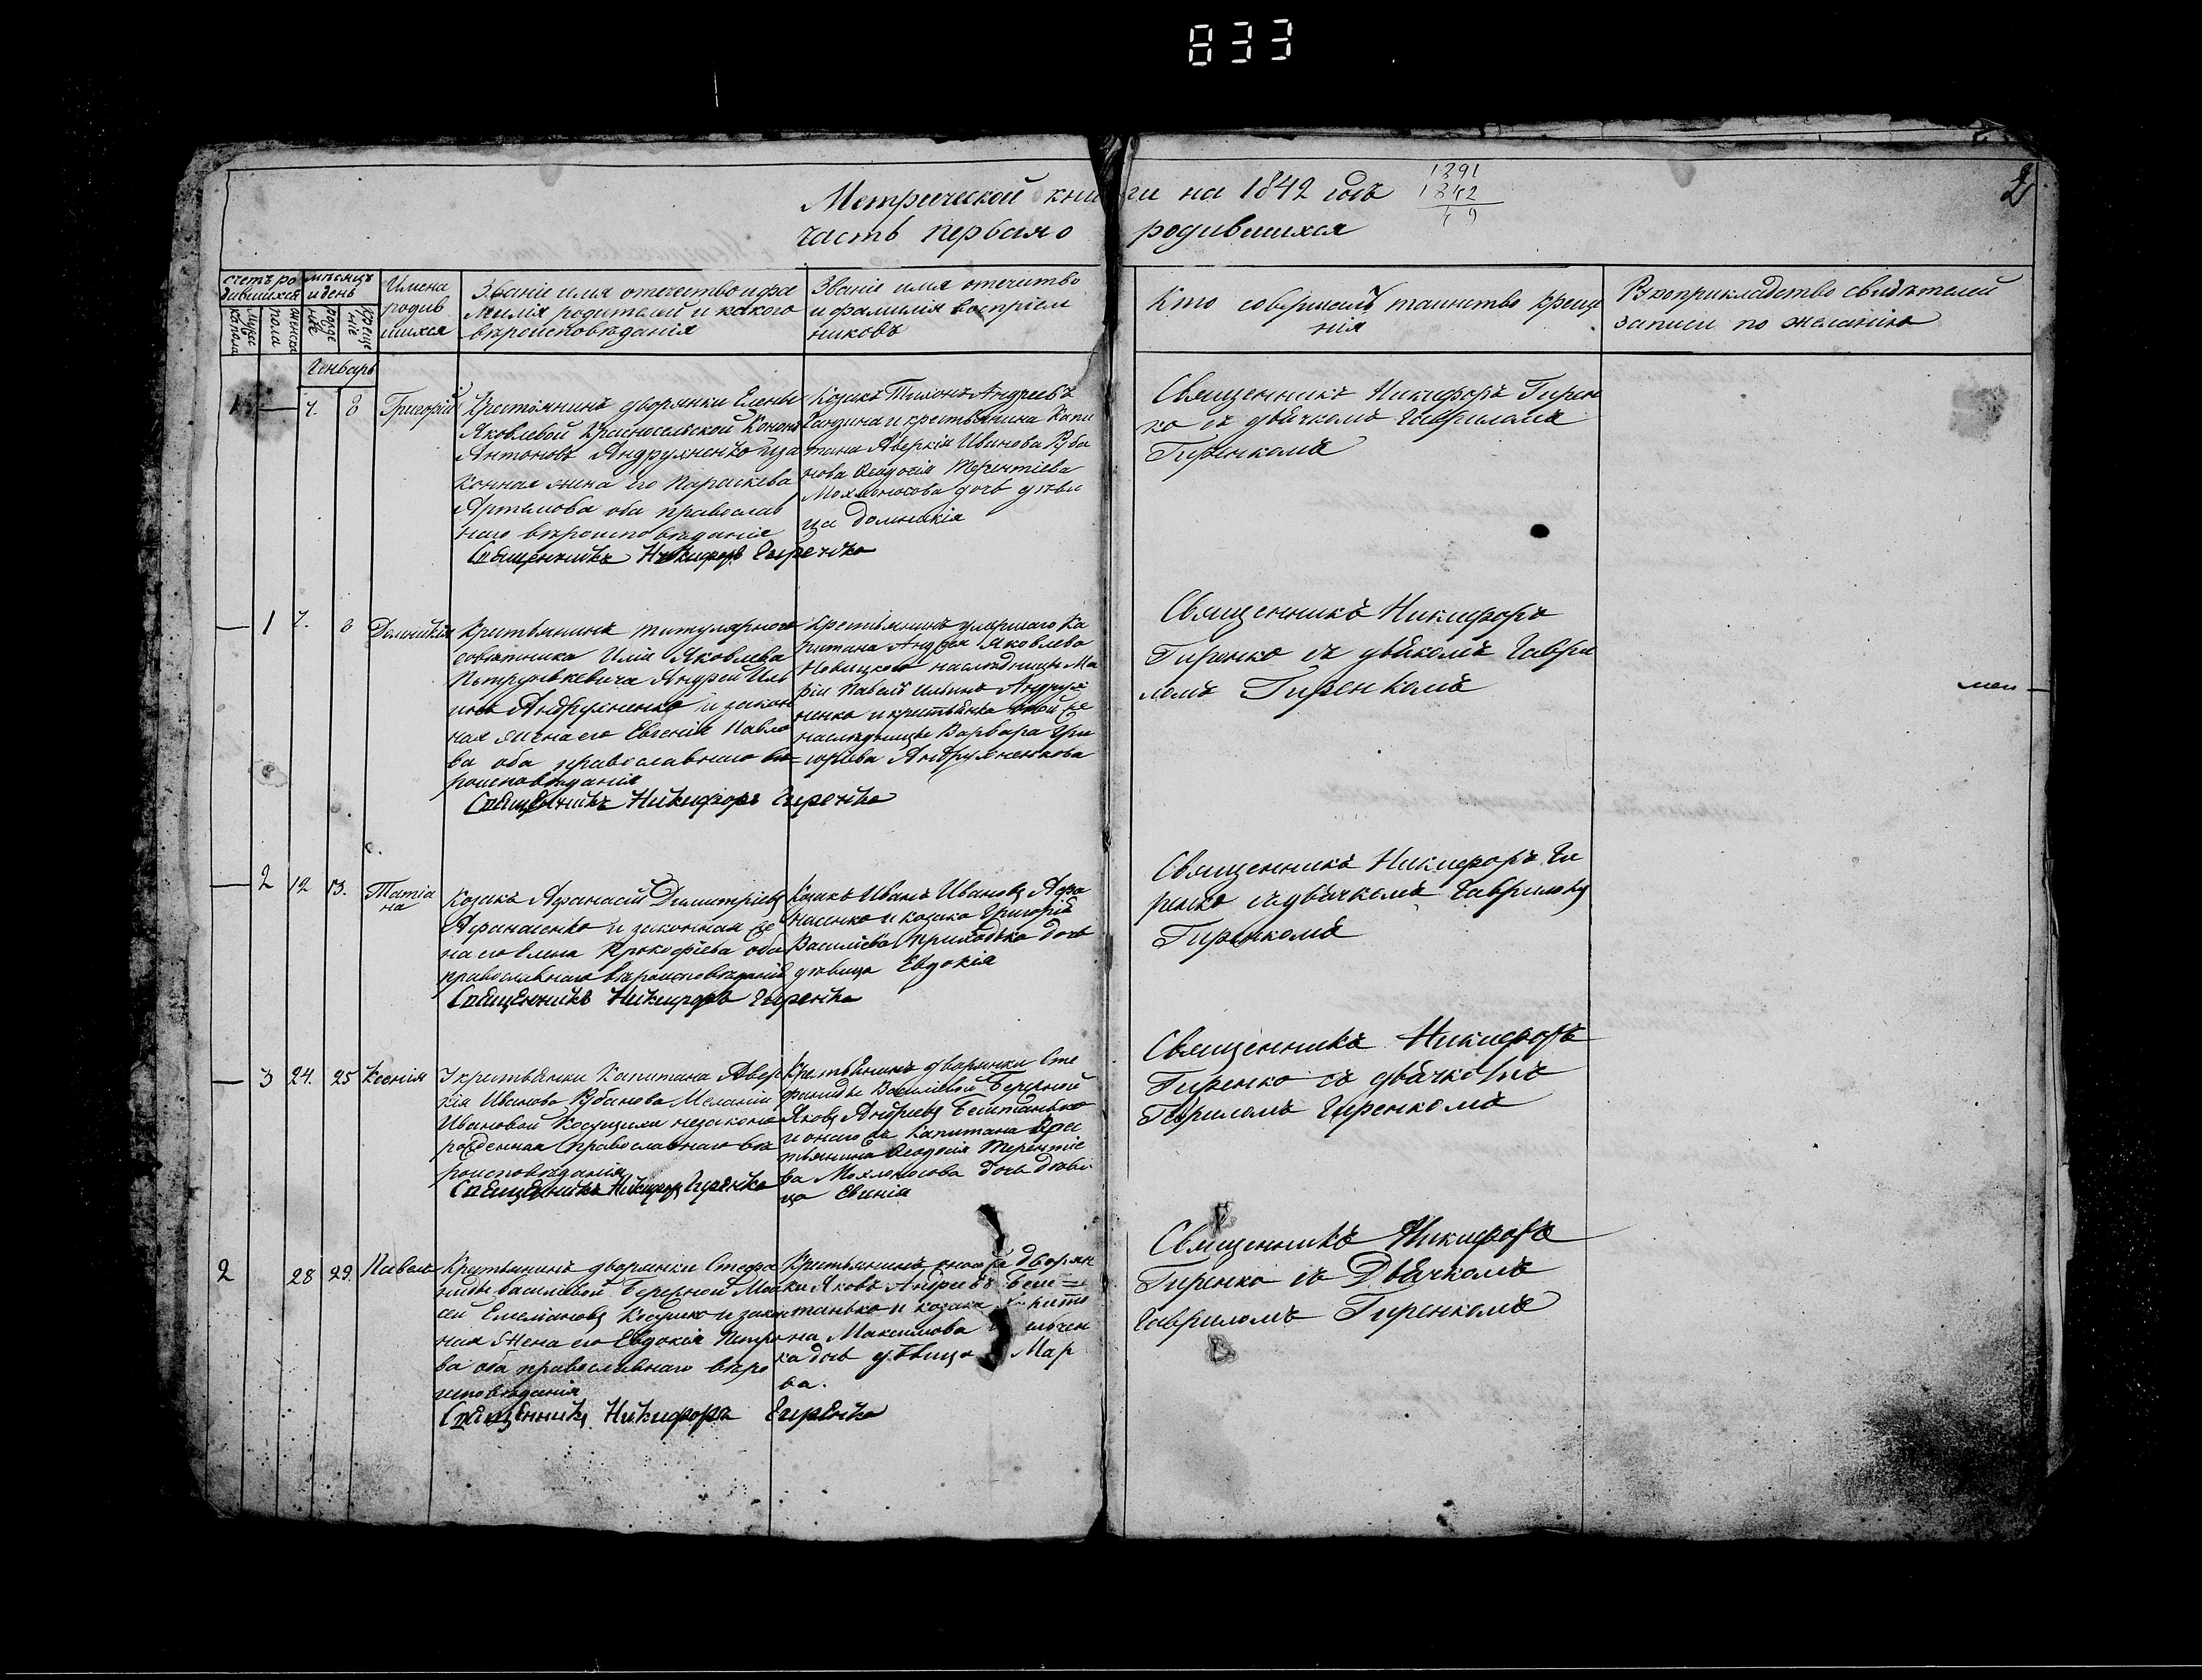 833
Метрической книги на 1842 годъ
1891
1842
49
2
часть первая о родившихся
счетъ родившихся
мѣсяцъ и день
Имена родившихся
Званіе имя отечество и фамилія родителей и какого вѣроисповѣданія
Званіе имя отечество и фамилія воспріемниковъ
Кто совершалъ таинство крещенія
Рукоприкладство свидѣтелей записи по желанію
мужеска пола
женска пола
рожденіе
крещеніе
Генварь
1 — 7. 8 Григорій
Крестьянинъ дворянки Елены
Яковлевой Красносельской Кононъ
Антоновъ Андрухненко и за
конная жена его Параскева
Артемова оба православ
наго вѣроисповѣданія
Священникъ Никифоръ Гиренко
Козакъ Тимонъ Андреевъ
и крестьянина Капи
тана Аверкія Иванова Руба
нова Ѳеодосія Терентіева
Мохлоносова дочь дѣви
ца Домникія
Священникъ Никифоръ Гирен
ко съ дьячкомъ Гавриломъ
Гиренкомъ
— 1 7. 8 Домникія
Крестьянинъ титулярного
совѣтника Иліи Яковлева
Петрункевича Андрей Иль
инъ Андрухненко и закон
ная жена его Евгенія Павло
ва оба православнаго вѣ
роисповѣданія
Священникъ Никифоръ Гиренко
Крестьянинъ умершаго Ка
питана Андрея Яковлева
Новицкого наслѣдницы Ма
ріи Павелъ Ильинъ Андрух
ненко и крестьянка той же
наслѣдницы Варвара Гри
горьева Андрухненкова
Священникъ Никифоръ
Гиренко съ дьякомъ Гаври
ломъ Гиренкомъ
— 2 12 13. Татіа
на
Козакъ Афанасій Димитріевъ
Афанасенко и законная же
на его Елена Прокофіева оба
православнаго вѣроисповѣданія
Священникъ Никифоръ Гиренко
Козакъ Иванъ Ивановъ Афа
насенко и козака Григорія
Василіева Приходька дочь
дѣвица Евдокія
Священникъ Никифоръ Ги
ренко съ дьячкомъ Гавриломъ
Гиренкомъ
— 3 24. 25 Ксенія
У крестьянки Капитана Авер
кія Иванова Рубанова Меланіи
Ивановой незаконо
рожденная православнаго вѣ
роисповѣданія
Священникъ Никифоръ Гиренко
Крестьянинъ дворянки Сте
фаниды Василіевой Бережной
Яковъ Андреевъ Бештанько
и онаго же Капитана кре
стьянина Ѳеодосія Терентіе
ва Мохлоносова дочь дѣви
ца
Священникъ Никифоръ
Гиренко съ дьячкомъ
Гавриломъ Гиренкомъ
2 28 29. Павелъ
Крестьянинъ дворянки Стефа
ниды Василіевой Бережной Мои
сей Емеліановъ и закон
ная жена его Евдокія Петро
ва оба православнаго вѣро
исповѣданія
Священникъ Никифоръ Гиренко
Крестьянинъ оной же дворян
ки Яковъ Андреевъ Беш=
танько и козака
на Максимова
ка дочь дѣвица Мар
ва.
Священникъ Никифоръ
Гиренко съ Дьячкомъ
Гавриломъ Гиренкомъ